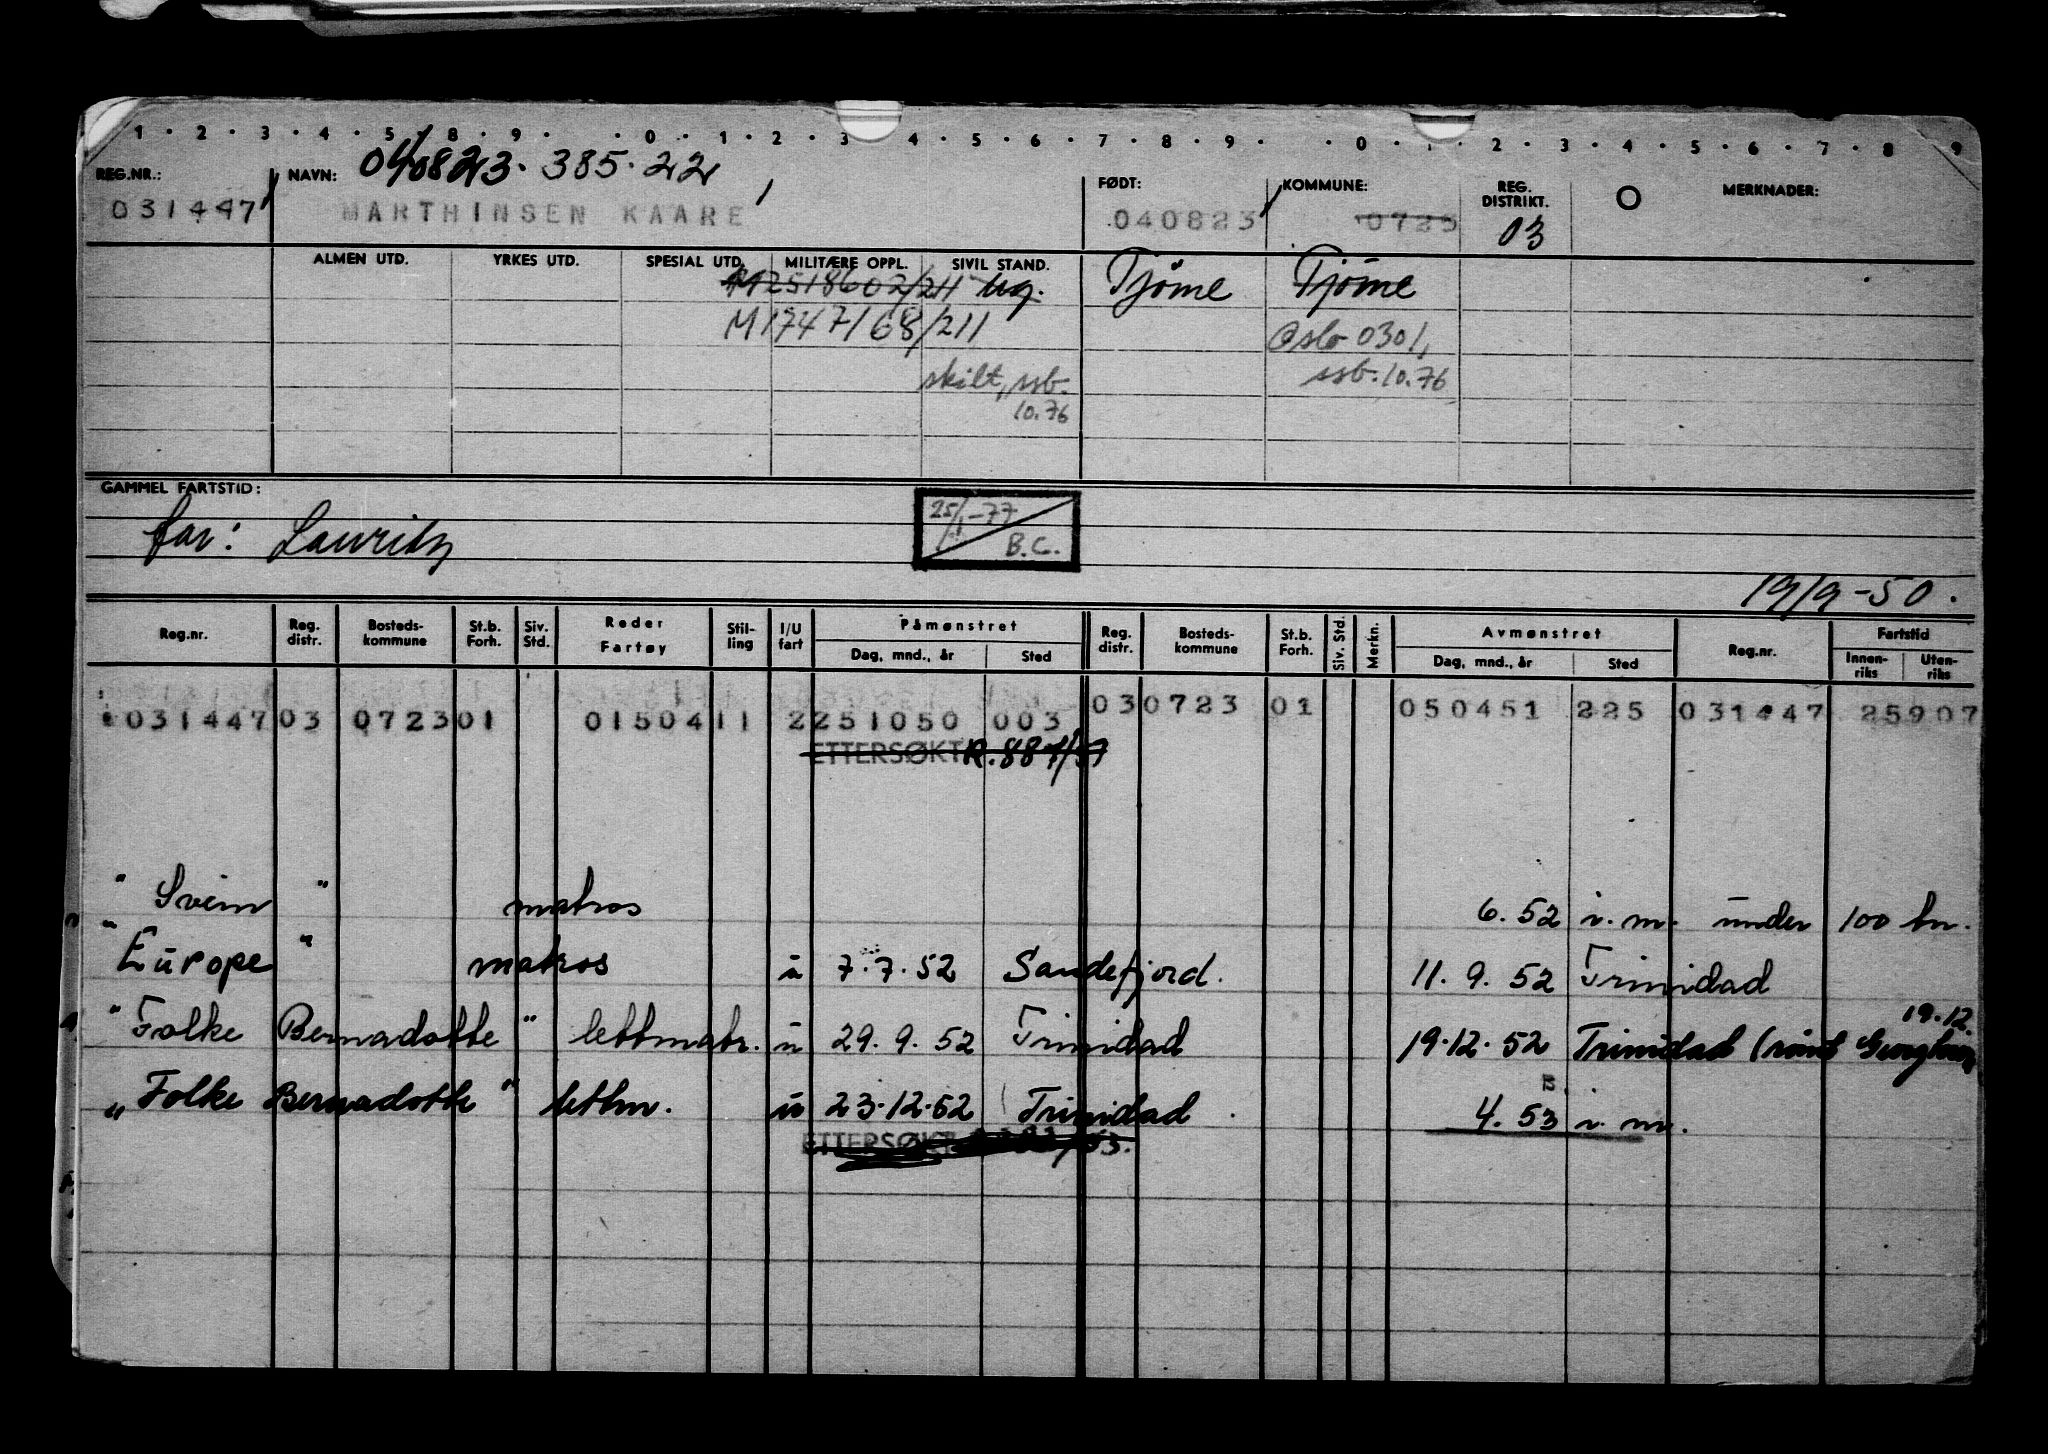 1 · 2 · 3 · 4 · 5 · 8 · 9 · · 0 · 1 · 2 · 3 4 · 5 · 6 · 7 · 8 · 9 · · 0 · 1 · 2 · 3 · 4 · 5 · 6 · 7 · 8 · 9
REG.NR.: NAVN: 040823. 385. 22 FØDT: KOMMUNE: REG. DISTRIKT. MERKNADER:
031447 MARTHINSEN KAARE 040823 0723 03
ALMEN UTD. YRKES UTD. SPESIAL UTD. MILITÆRE OPPL. SIVIL STAND.
M2518602/211 ug. Tjöme Tjöme
M1747/68/211 Oslo 0301,
skilt, ssb. ssb. 10.76
10.76
GAMMEL FARTSTID:
25/1-77
far: Lauritz B.C.
19/9-50.
Reg.nr. Reg. distr. Bosteds-kommune St.b. Forh. Siv. Std. Reder Fartøy Stil-ling I/U fart Påmønstret Dag, mnd., år Sted Reg. distr. Bosteds-kommune St.b. Forh. Siv. Std. Merkn. Avmønstret Dag, mnd., år Sted Reg.nr. Fartstid Innen-riks Uten-riks
031447 03 0723 01 01504 11 2 251050 003 03 0723 01 050451 225 031447 25907
ETTERSØKT R.887/57
" Svein " matros 6. 52 i. m. under 100 tn.
" Europe " matros u 7. 7. 52 Sandefjord. 11. 9. 52 Trinidad
19.12.
" Folke Bernadotte " lettmatr. u 29. 9. 52 Trinidad 19.12.52 Trinidad
" Folke Bernadotte " lettm. u 23.12.52 Trinidad . 4. 53 i. m.
ETTERSØKT /53.